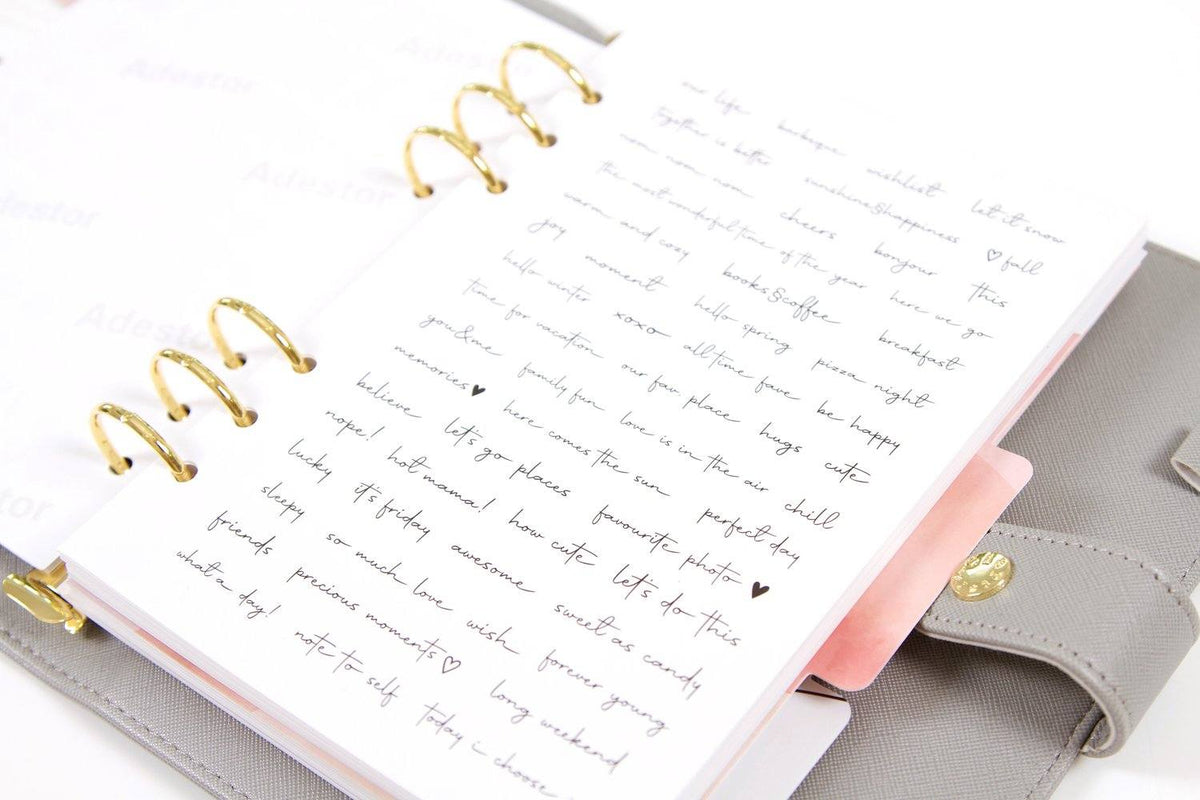 Adestor
Adestor
Adestor
Adestor
our life barbeque wishlist let it snow
Together is better sunshine&happiness ♡ fall
nom nom nom cheers bonjour this
the most wonderful time of the year here we go
warm and cozy books&coffee breakfast
joy moment hello spring pizza night
hello winter xoxo all time fave be happy
time for vacation our fav. place hugs cute
you&me family fun love is in the air chill
memories♥ here comes the sun perfect day
believe let's go places favourite photo ♥
nope! hot mama! how cute let's do this
lucky it's friday awesome sweet as candy
sleepy so much love wish forever young
friends precious moments♡ long weekend
what a day! note to self today i choose